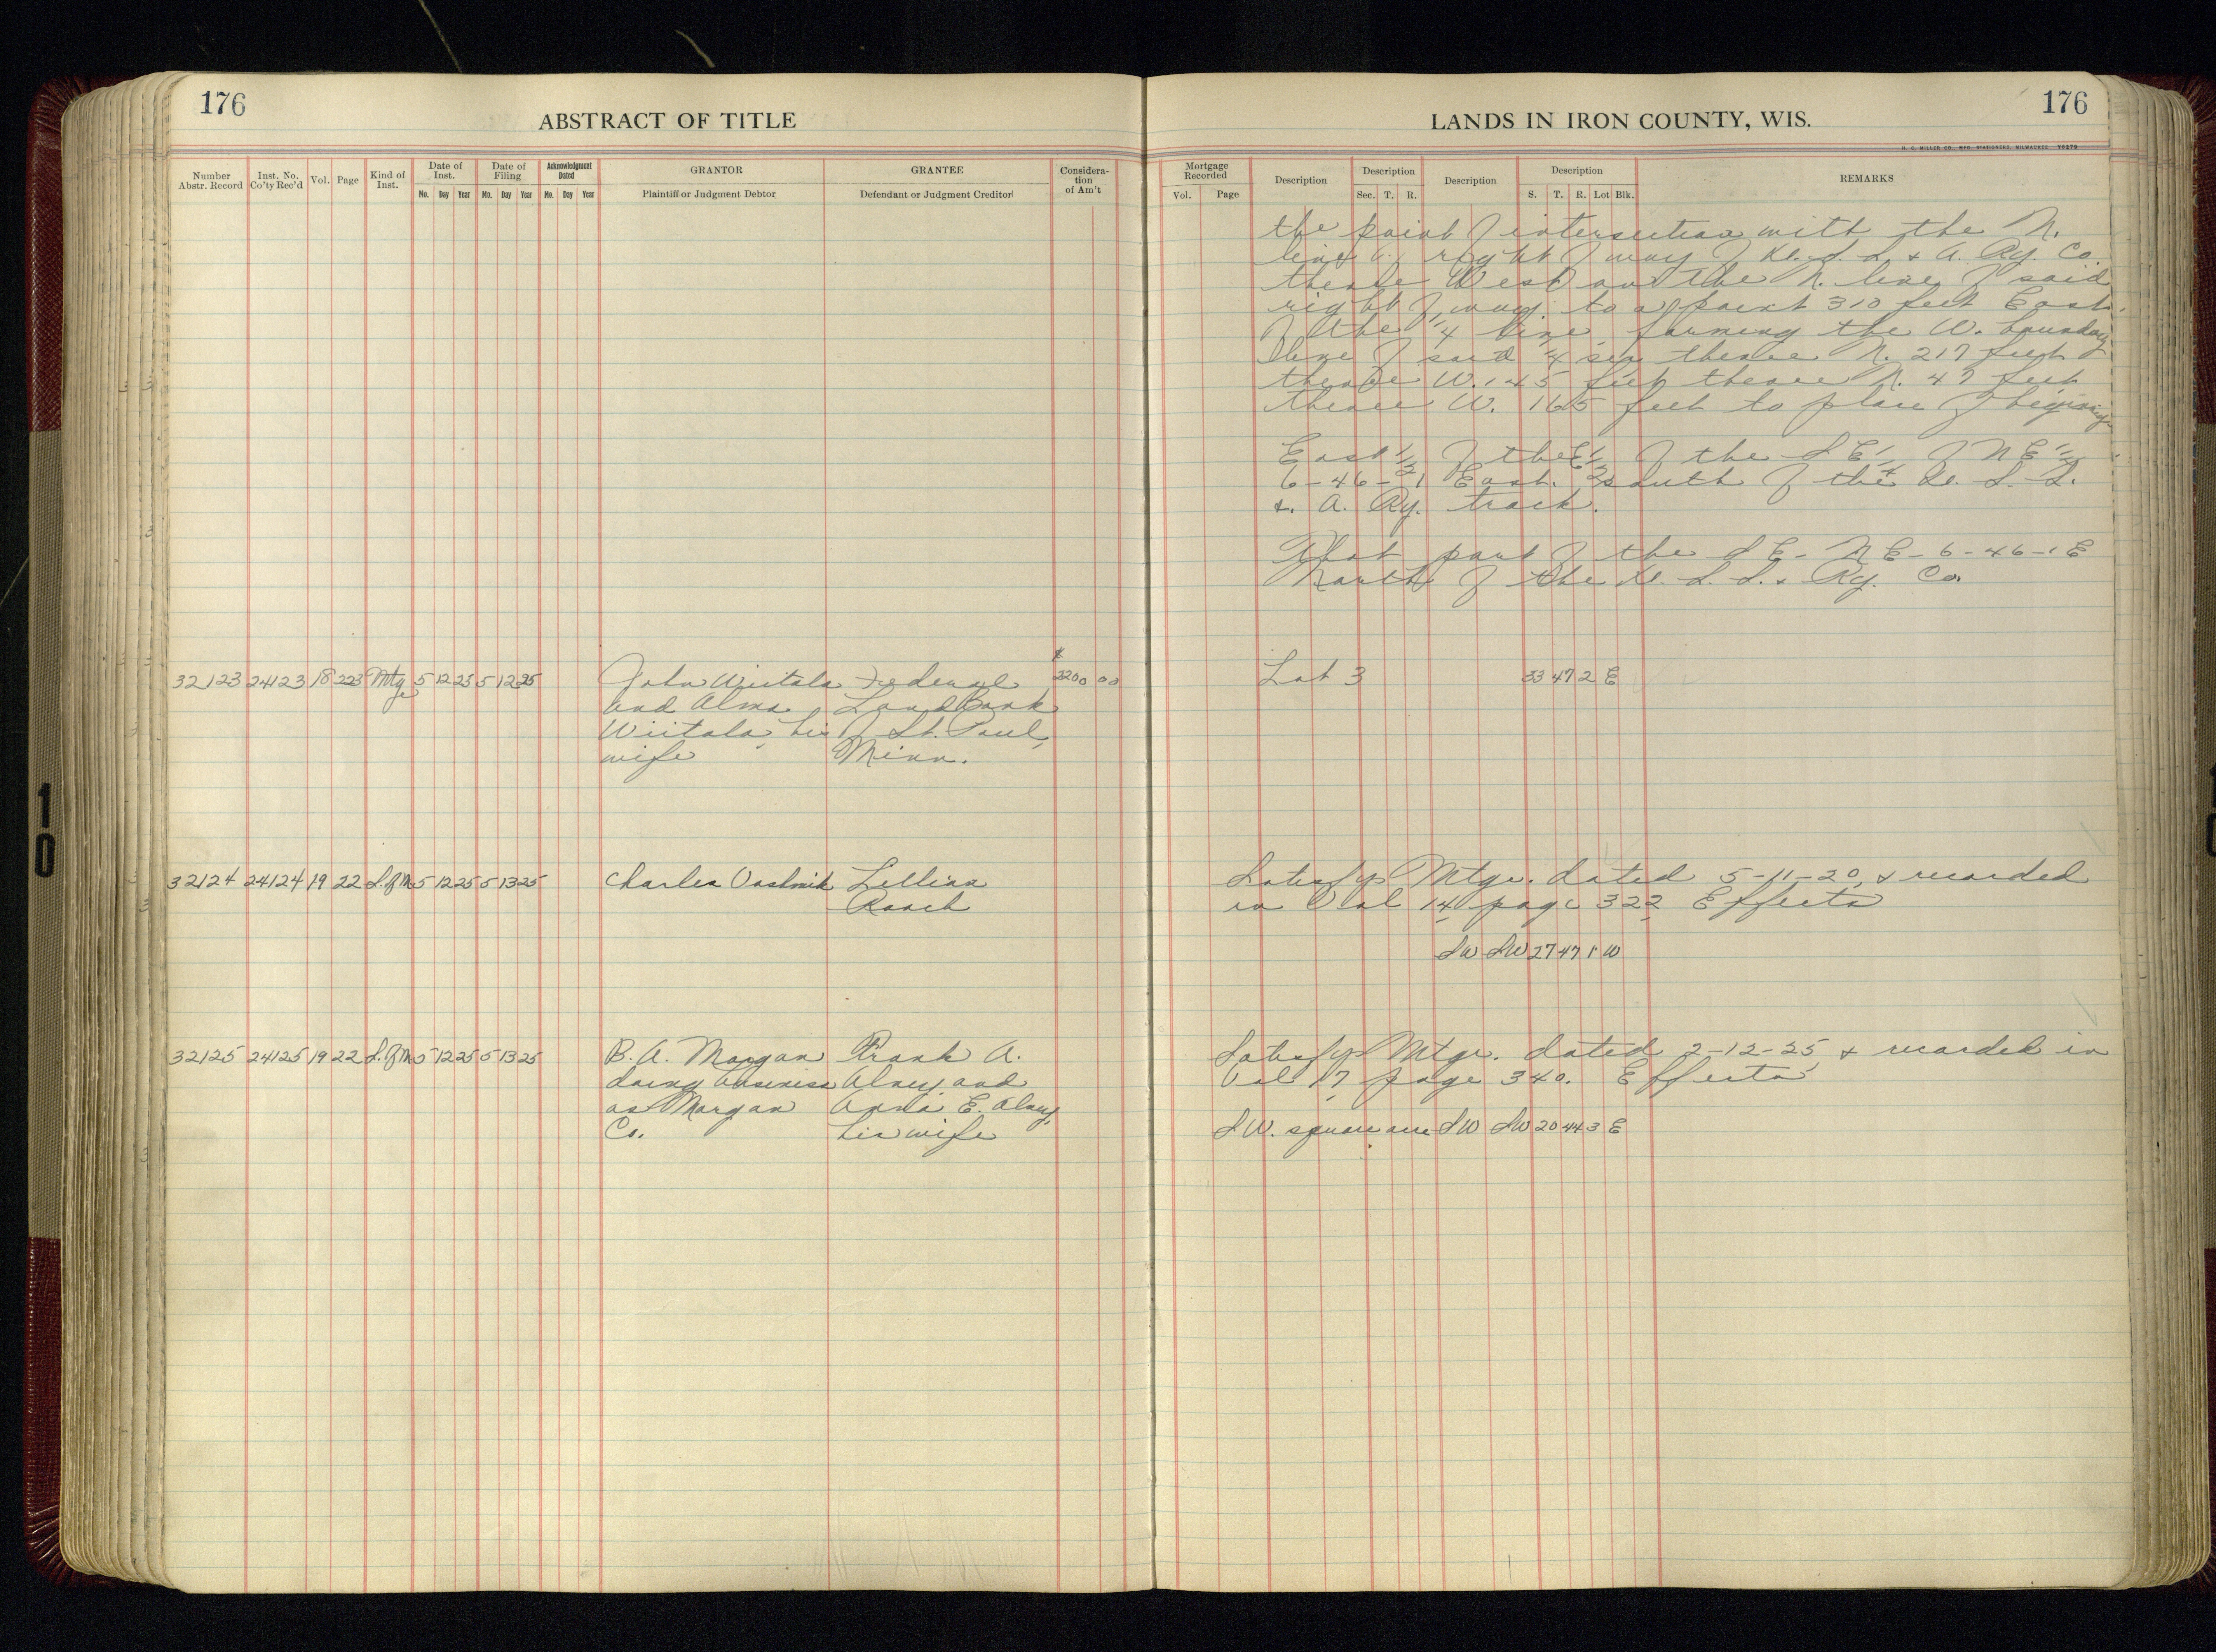 176
ABSTRACT OF TITLE
LANDS IN IRON COUNTY, WIS.
176
H. C. MILLER CO., MFG. STATIONERS, MILWAUKEE
Number Abstr. Record
Inst. No. Co'ty Rec'd
Vol.
Page
Kind of Inst.
Date of Inst.
Mo. Day Year
Date of Filing
Mo. Day Year
Acknowledgment Dated
Mo. Day Year
GRANTOR
Plaintiff or Judgment Debtor
GRANTEE
Defendant or Judgment Creditor
Consideration of Am't
Mortgage Recorded
Vol. Page
Description
Description
Sec. T. R.
Description
Description
S. T. R. Lot Blk.
REMARKS
the point of intersection with the N.
line of right of way of D. S. S. & A. Ry. Co.
thence West on the N. line of said
right of way to a point 310 feet East
of the 1/4 line forming the W. boundary
line of said 1/4 sec thence N. 217 feet
thence W. 145 feet thence N. 47 feet
thence W. 165 feet to place of beginning
East 1/2 of the E 1/2 of the SE 1/4 of NE 1/4
6-46-1 East. South of the D. S. S.
& A. Ry. track.
That part of the SE-NE-6-46-1 E
North of the D. S. S. & Ry. Co.
32123 24123 18 223 Mtge 5 12 25 5 12 25 John Wiitala Federal $3200 00 Lot 3 33 47 2 E
and Alma Land Bank
Wiitala, his of St. Paul,
wife Minn.
32124 24124 19 22 S. of M 5 12 25 5 13 25 Charles Lillian Satisfys Mtge. dated 5-11-20 & recorded
in Vol 14 page 322 Effects
SW SW 27 47 1 W
32125 24125 19 22 S. of M 5 12 25 5 13 25 B. A. Morgan Frank A. Satisfys Mtge. dated 2-12-25 & recorded in
doing business Alney and Vol 17 page 340. Effects
as Morgan Anna E. Alney,
Co. his wife SW. square acre SW SW 20 44 3 E
10